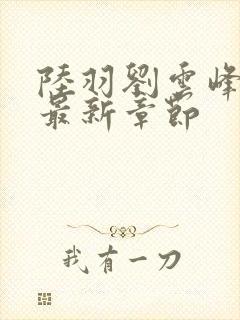 陸羽劉雲峰
最新章節
我有一刀